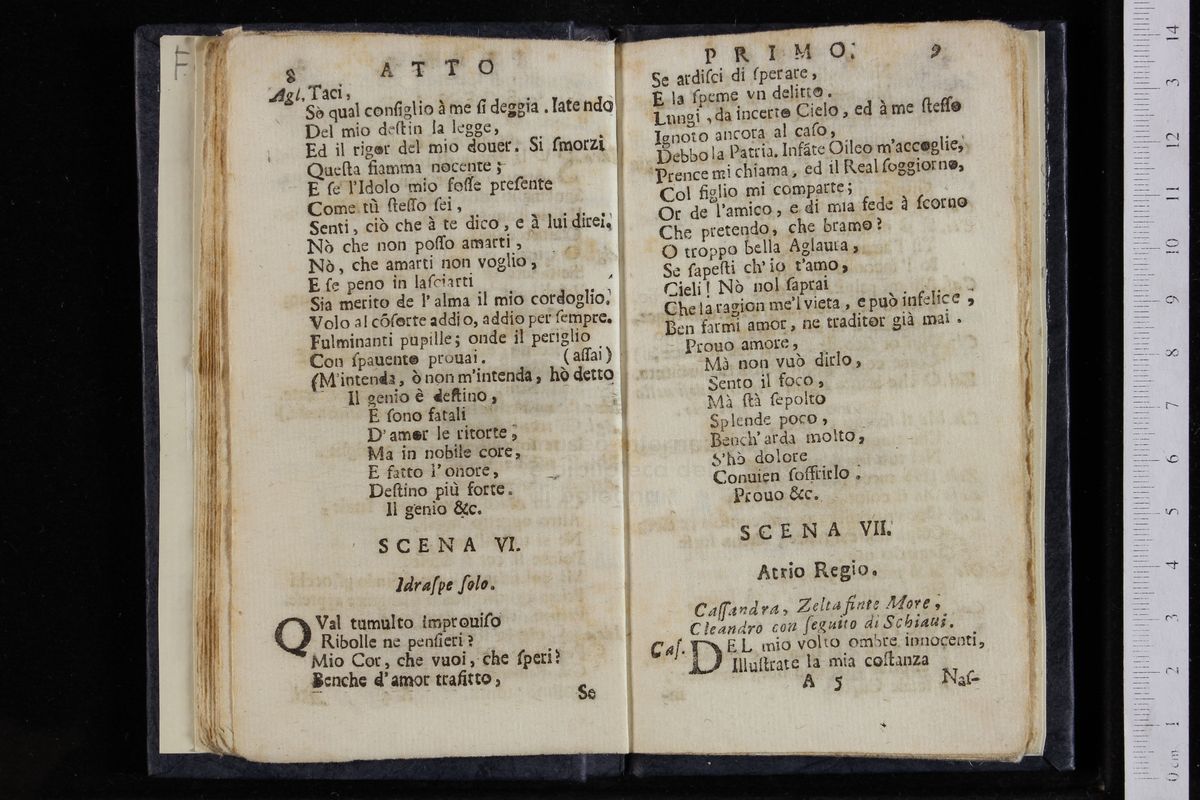 F
8 ATTO
Agl. Taci,
Sò qual conſiglio à me ſi deggia. Iatendo
Del mio deſtin la legge,
Ed il rigor del mio douer. Si ſmorzi
Queſta fiamma nocente;
E ſe l'Idolo mio foſſe preſente
Come tù ſteſſo ſei,
Senti, ciò che à te dico, e à lui direi.
Nò che non poſſo amarti,
Nò, che amarti non voglio,
E ſe peno in laſciarti
Sia merito de l'alma il mio cordoglio.
Volo al cõſorte addio, addio per ſempre.
Fulminanti pupille; onde il periglio
Con ſpauento prouai. (aſſai)
(M'intenda, ò non m'intenda, hò detto
Il genio è deſtino,
E ſono fatali
D'amor le ritorte;
Ma in nobile core,
E fatto l'onore,
Deſtino più forte.
Il genio &c.
SCENA VI.
Idraſpe ſolo.
QVal tumulto improuiſo
Ribolle ne penſieri?
Mio Cor, che vuoi, che ſperi?
Benche d'amor trafitto,
Se
PRIMO. 9
Se ardiſci di ſperare,
E la ſpeme vn delitto.
Lungi, da incerto Cielo, ed à me ſteſſo
Ignoto ancora al caſo,
Debbo la Patria. Infãte Oileo m'accoglie,
Prence mi chiama, ed il Real ſoggiorno,
Col figlio mi comparte;
Or de l'amico, e di mia fede à ſcorno
Che pretendo, che bramo?
O troppo bella Aglaura,
Se ſapeſti ch'io t'amo,
Cieli! Nò nol ſaprai
Che la ragion me'l vieta, e può infelice,
Ben farmi amor, ne traditor già mai.
Prouo amore,
Mà non vuò dirlo,
Sento il foco,
Mà ſtà ſepolto
Splende poco,
Bench'arda molto,
S'hò dolore
Conuien ſoffrirlo.
Prouo &c.
SCENA VII.
Atrio Regio.
Caſſandra, Zelta finte More,
Cleandro con ſeguito di Schiaui.
Caſ. DEL mio volto ombre innocenti,
Illuſtrate la mia coſtanza
A 5 Naſ-